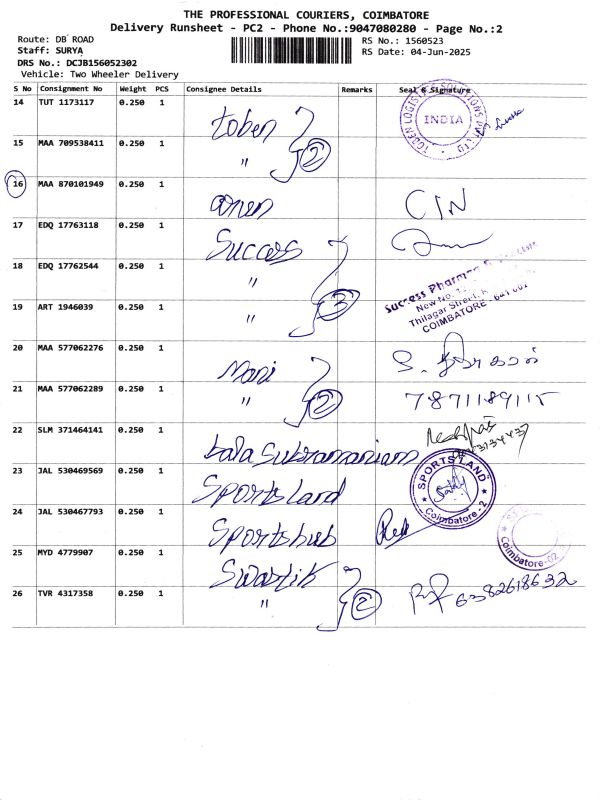 THE PROFESSIONAL COURIERS, COIMBATORE
Delivery Runsheet - PC2 - Phone No.:9047080280 - Page No.:2
Route: DB ROAD
Staff: SURYA
DRS No.: DCJB156052302
Vehicle: Two Wheeler Delivery
RS No.: 1560523
RS Date: 04-Jun-2025
S No Consignment No Weight PCS Consignee Details Remarks Seal & Signature
14 TUT 1173117 0.250 1 toben INDIA
15 MAA 709538411 0.250 1 " 2
16 MAA 870101949 0.250 1 CIN
17 EDQ 17763118 0.250 1 Success
18 EDQ 17762544 0.250 1 " Success Pharma
New No.
Thilagar Street,
COIMBATORE - 641 002
19 ART 1946039 0.250 1 " 3
20 MAA 577062276 0.250 1 Mani
21 MAA 577062289 0.250 1 " 2 7871189115
22 SLM 371464141 0.250 1 bala Subramaniam
23 JAL 530469569 0.250 1 Sports Land SPORTS LAND
Coimbatore - 2
24 JAL 530467793 0.250 1 Sports hub Coimbatore-02
25 MYD 4779907 0.250 1 Swastik
26 TVR 4317358 0.250 1 " 2 6382618632